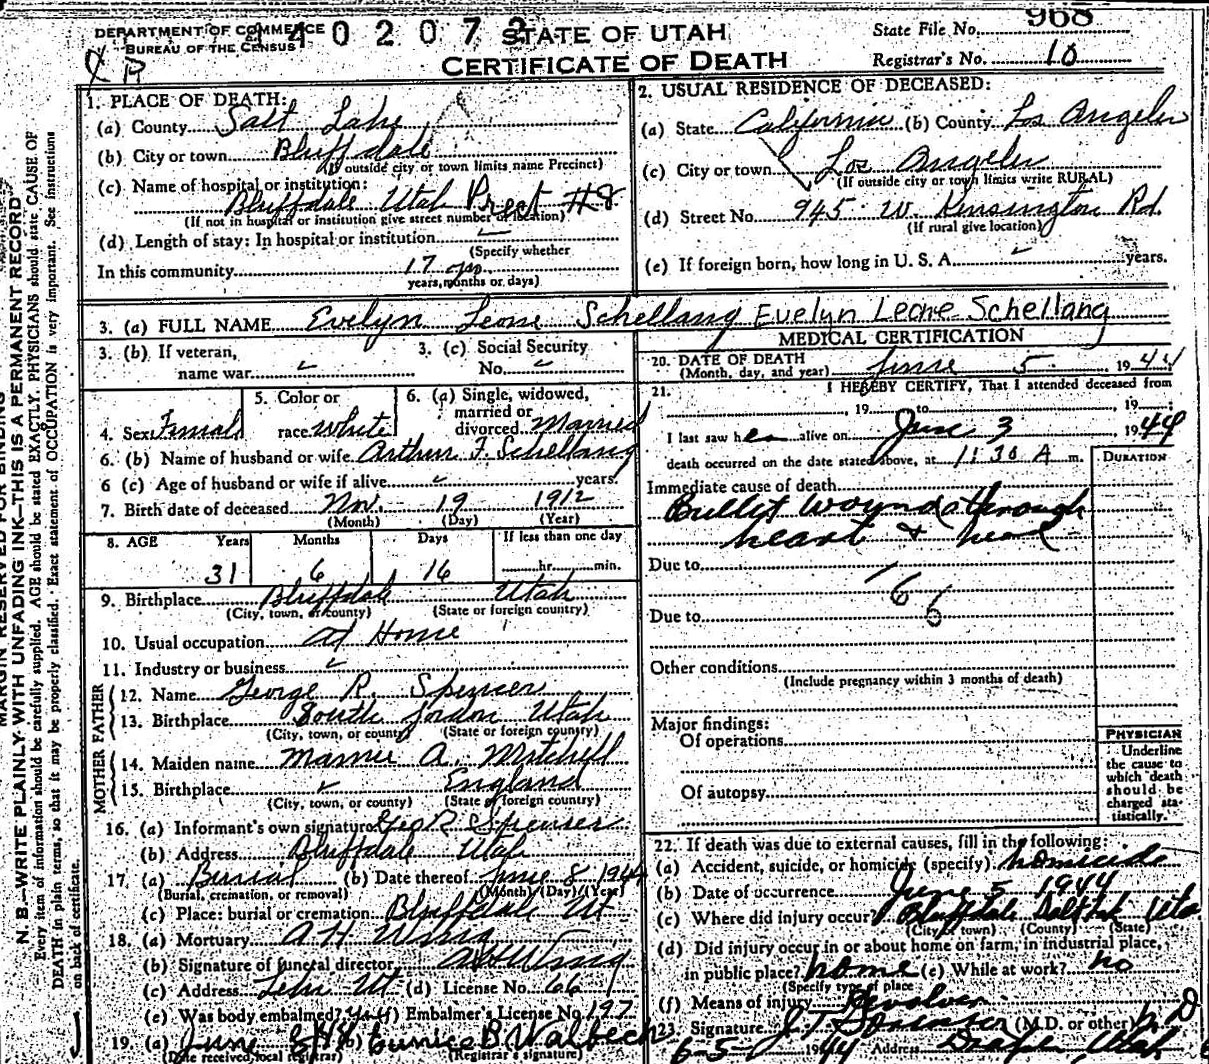 DEPARTMENT OF COMMERCE
BUREAU OF THE CENSUS
4 0 2 0 7 2
STATE OF UTAH
CERTIFICATE OF DEATH
State File No. 968
Registrar's No. 10
MARGIN RESERVED FOR BINDING
N. B.—WRITE PLAINLY WITH UNFADING INK—THIS IS A PERMANENT RECORD
Every item of information should be carefully supplied. AGE should be stated EXACTLY. PHYSICIANS should state CAUSE OF
DEATH in plain terms, so that it may be properly classified. Exact statement of OCCUPATION is very important. See instructions
on back of certificate.
1. PLACE OF DEATH:
(a) County Salt Lake
(b) City or town Bluffdale
(If outside city or town limits name Precinct)
(c) Name of hospital or institution:
Bluffdale Utah Prect #8
(If not in hospital or institution give street number or location)
(d) Length of stay: In hospital or institution
(Specify whether
In this community 17
years, months or days)
2. USUAL RESIDENCE OF DECEASED:
(a) State California (b) County Los Angeles
(c) City or town Los Angeles
(If outside city or town limits write RURAL)
(d) Street No. 945 W. Kensington Rd.
(If rural give location)
(e) If foreign born, how long in U. S. A. years.
3. (a) FULL NAME Evelyn Leone Schellang Evelyn Leone Schellang
3. (b) If veteran,
name war
3. (c) Social Security
No.
4. Sex Female
5. Color or
race White
6. (a) Single, widowed,
married or
divorced Married
6. (b) Name of husband or wife Arthur F. Schellang
6 (c) Age of husband or wife if alive years.
7. Birth date of deceased Nov. 19 1912
(Month) (Day) (Year)
8. AGE Years Months Days If less than one day
31 6 16 hr. min.
9. Birthplace Bluffdale Utah
(City, town, or county) (State or foreign country)
10. Usual occupation At Home
11. Industry or business
FATHER
12. Name George R. Spencer
13. Birthplace South Jordan Utah
(City, town, or county) (State or foreign country)
MOTHER
14. Maiden name Mamie A. Mitchell
15. Birthplace England
(City, town, or county) (State or foreign country)
16. (a) Informant's own signature Geo R Spencer
(b) Address Bluffdale Utah
17. (a) Burial (b) Date thereof June 8 1944
(Burial, cremation, or removal) (Month) (Day) (Year)
(c) Place: burial or cremation Bluffdale Ut
18. (a) Mortuary A H Wing
(b) Signature of funeral director
(c) Address Lehi Ut (d) License No. 66
(e) Was body embalmed? Embalmer's License No. 197
19. (a) June 8/44 (b) Eunice B. Walbeck
(Date received local registrar) (Registrar's signature)
MEDICAL CERTIFICATION
20. DATE OF DEATH
(Month, day, and year) June 5 1944
21. I HEREBY CERTIFY, That I attended deceased from
, 19 to , 19
I last saw her alive on June 3 1944
death occurred on the date stated above, at 11:30 A m.
DURATION
Immediate cause of death
Bullet wounds through
heart & head
Due to
166
Due to
Other conditions
(Include pregnancy within 3 months of death)
Major findings:
Of operations
Of autopsy
PHYSICIAN
Underline
the cause to
which death
should be
charged sta-
tistically.
22. If death was due to external causes, fill in the following:
(a) Accident, suicide, or homicide (specify) homicide
(b) Date of occurrence June 5 1944
(c) Where did injury occur? Bluffdale Salt Lak Uta
(City or town) (County) (State)
(d) Did injury occur in or about home on farm, in industrial place,
in public place? home (e) While at work? no
(Specify type of place
(f) Means of injury Revolver
23. Signature (M.D. or other) M D
6-5 1944 Address Draper, Utah